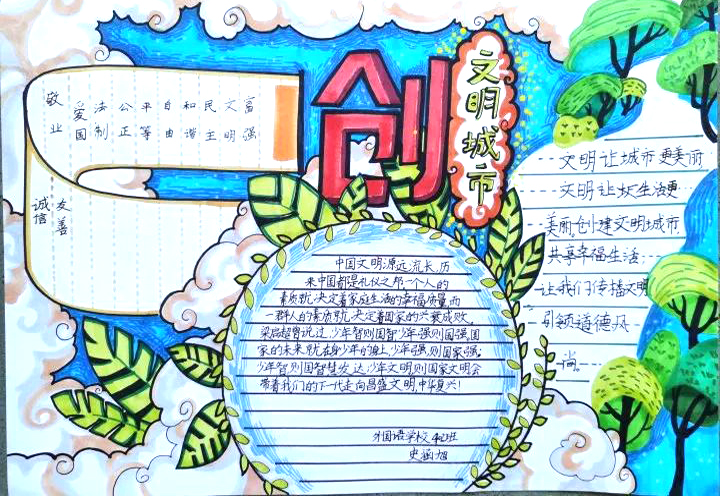 创
文明城市
富强
文明
民主
和谐
自由
平等
公正
法制
爱国
敬业
诚信
友善
中国文明源远流长,历
来中国都是礼仪之邦,一个人的
素质就决定着家庭生活的幸福质量,而
一群人的素质就决定着国家的兴衰成败,
梁启超曾说过,少年智则国智少年强则国强,国
家的未来就在少年的身上,少年强,则国家强;
少年智则国智慧发达,少年文明,则国家文明会
带着我们的下一代走向昌盛文明,中华复兴!
外国语学校 42班
史涵旭
文明让城市更美丽
文明让生活更
美丽,创建文明城市,
共享幸福生活.
让我们传播文明
引领道德风
尚。